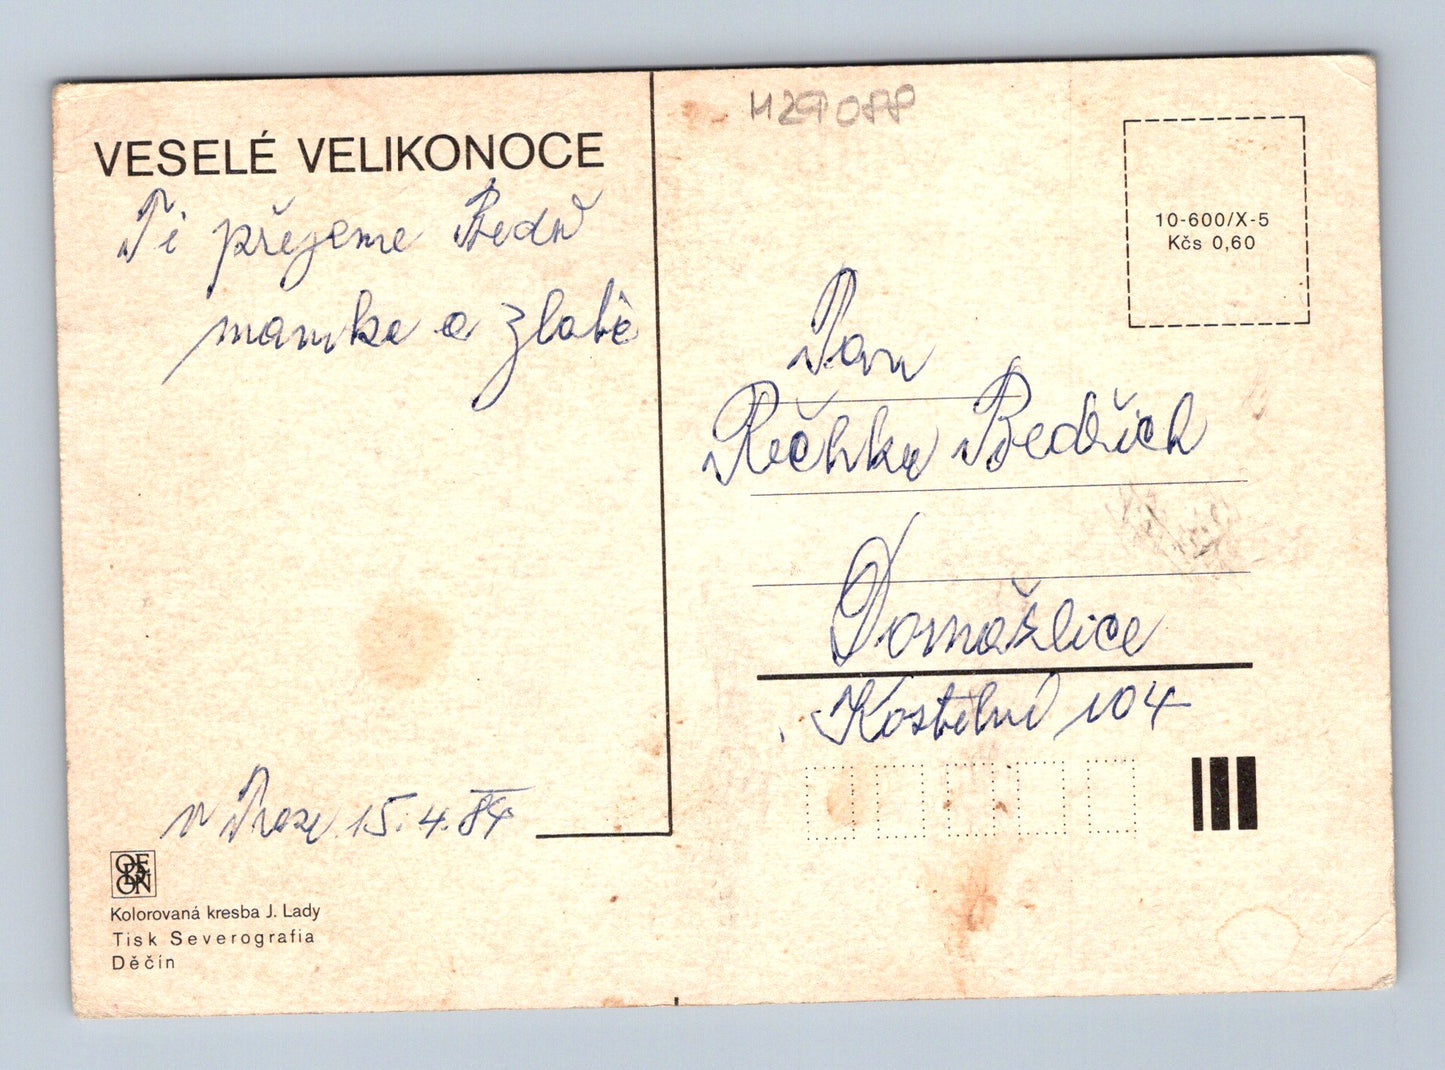 VESELÉ VELIKONOCE
Ti přejeme Bedň
mamka a zlatě
v Praze 15.4.84
ODEON
Kolorovaná kresba J. Lady
Tisk Severografia
Děčín
10-600/X-5
Kčs 0,60
Pan
Bedřich
Domašlice
Kostelní 104